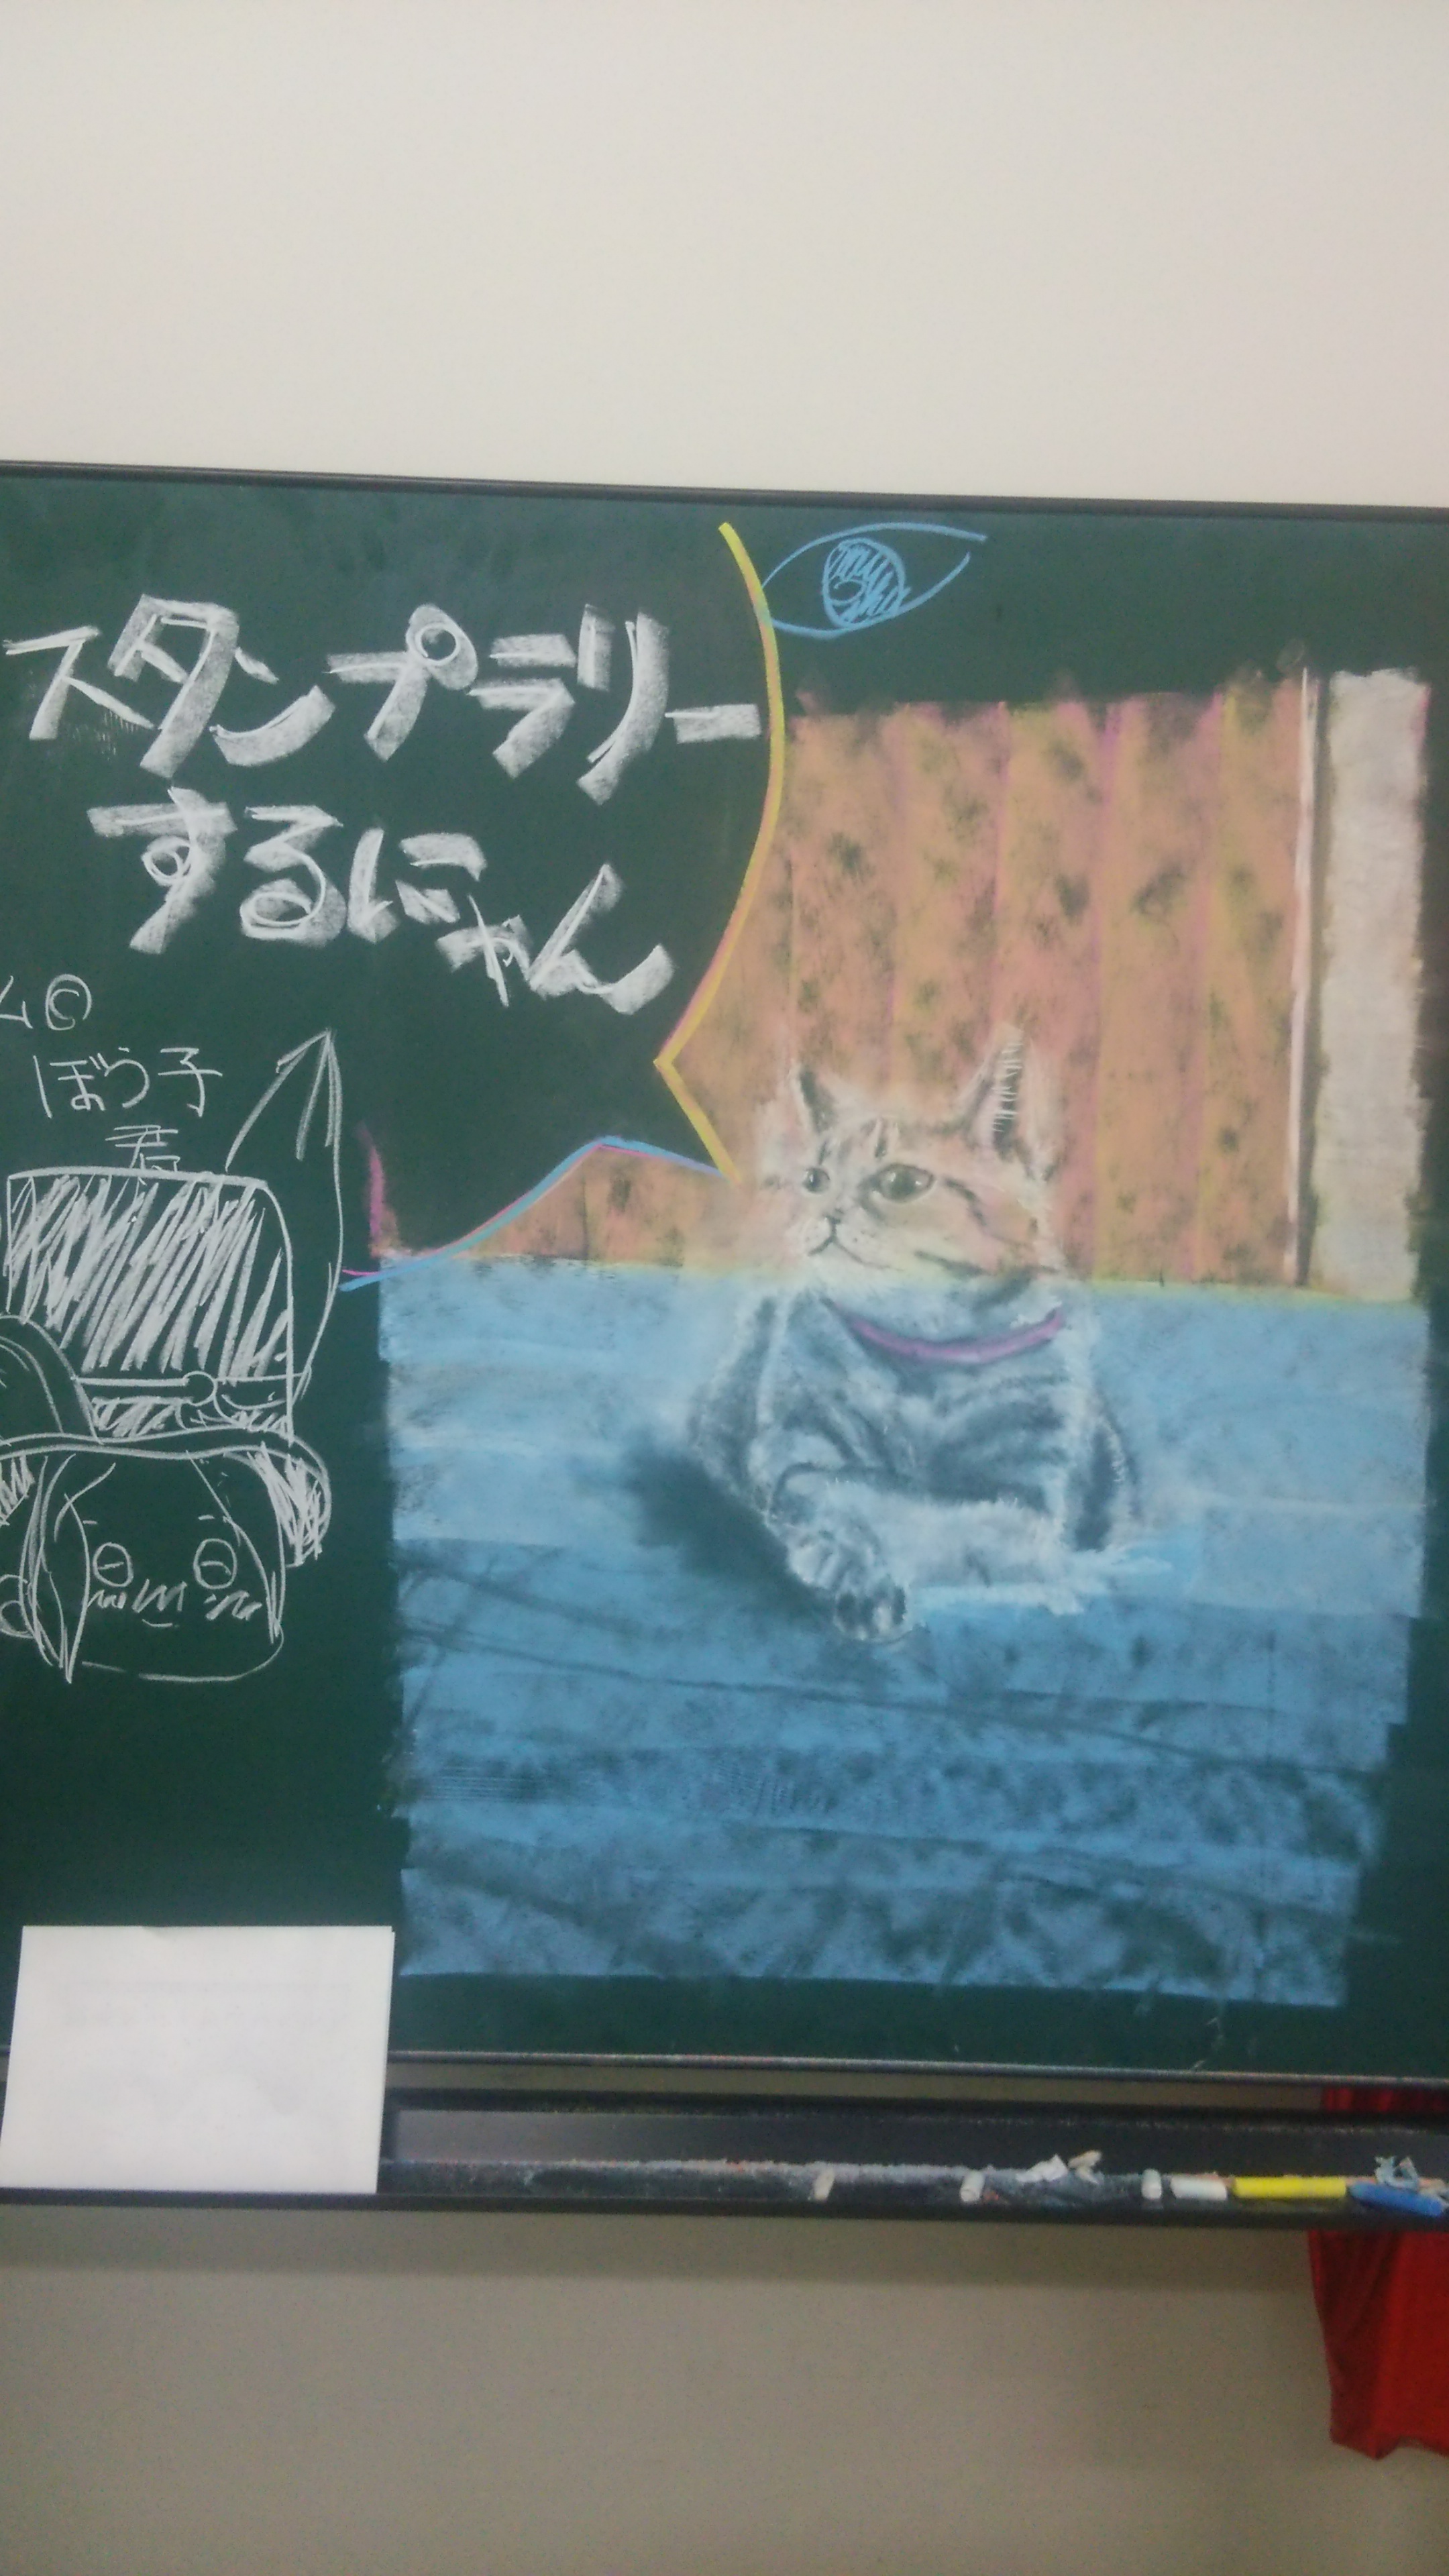 スタンプラリー
するにゃん
ム©
ぼう子
君